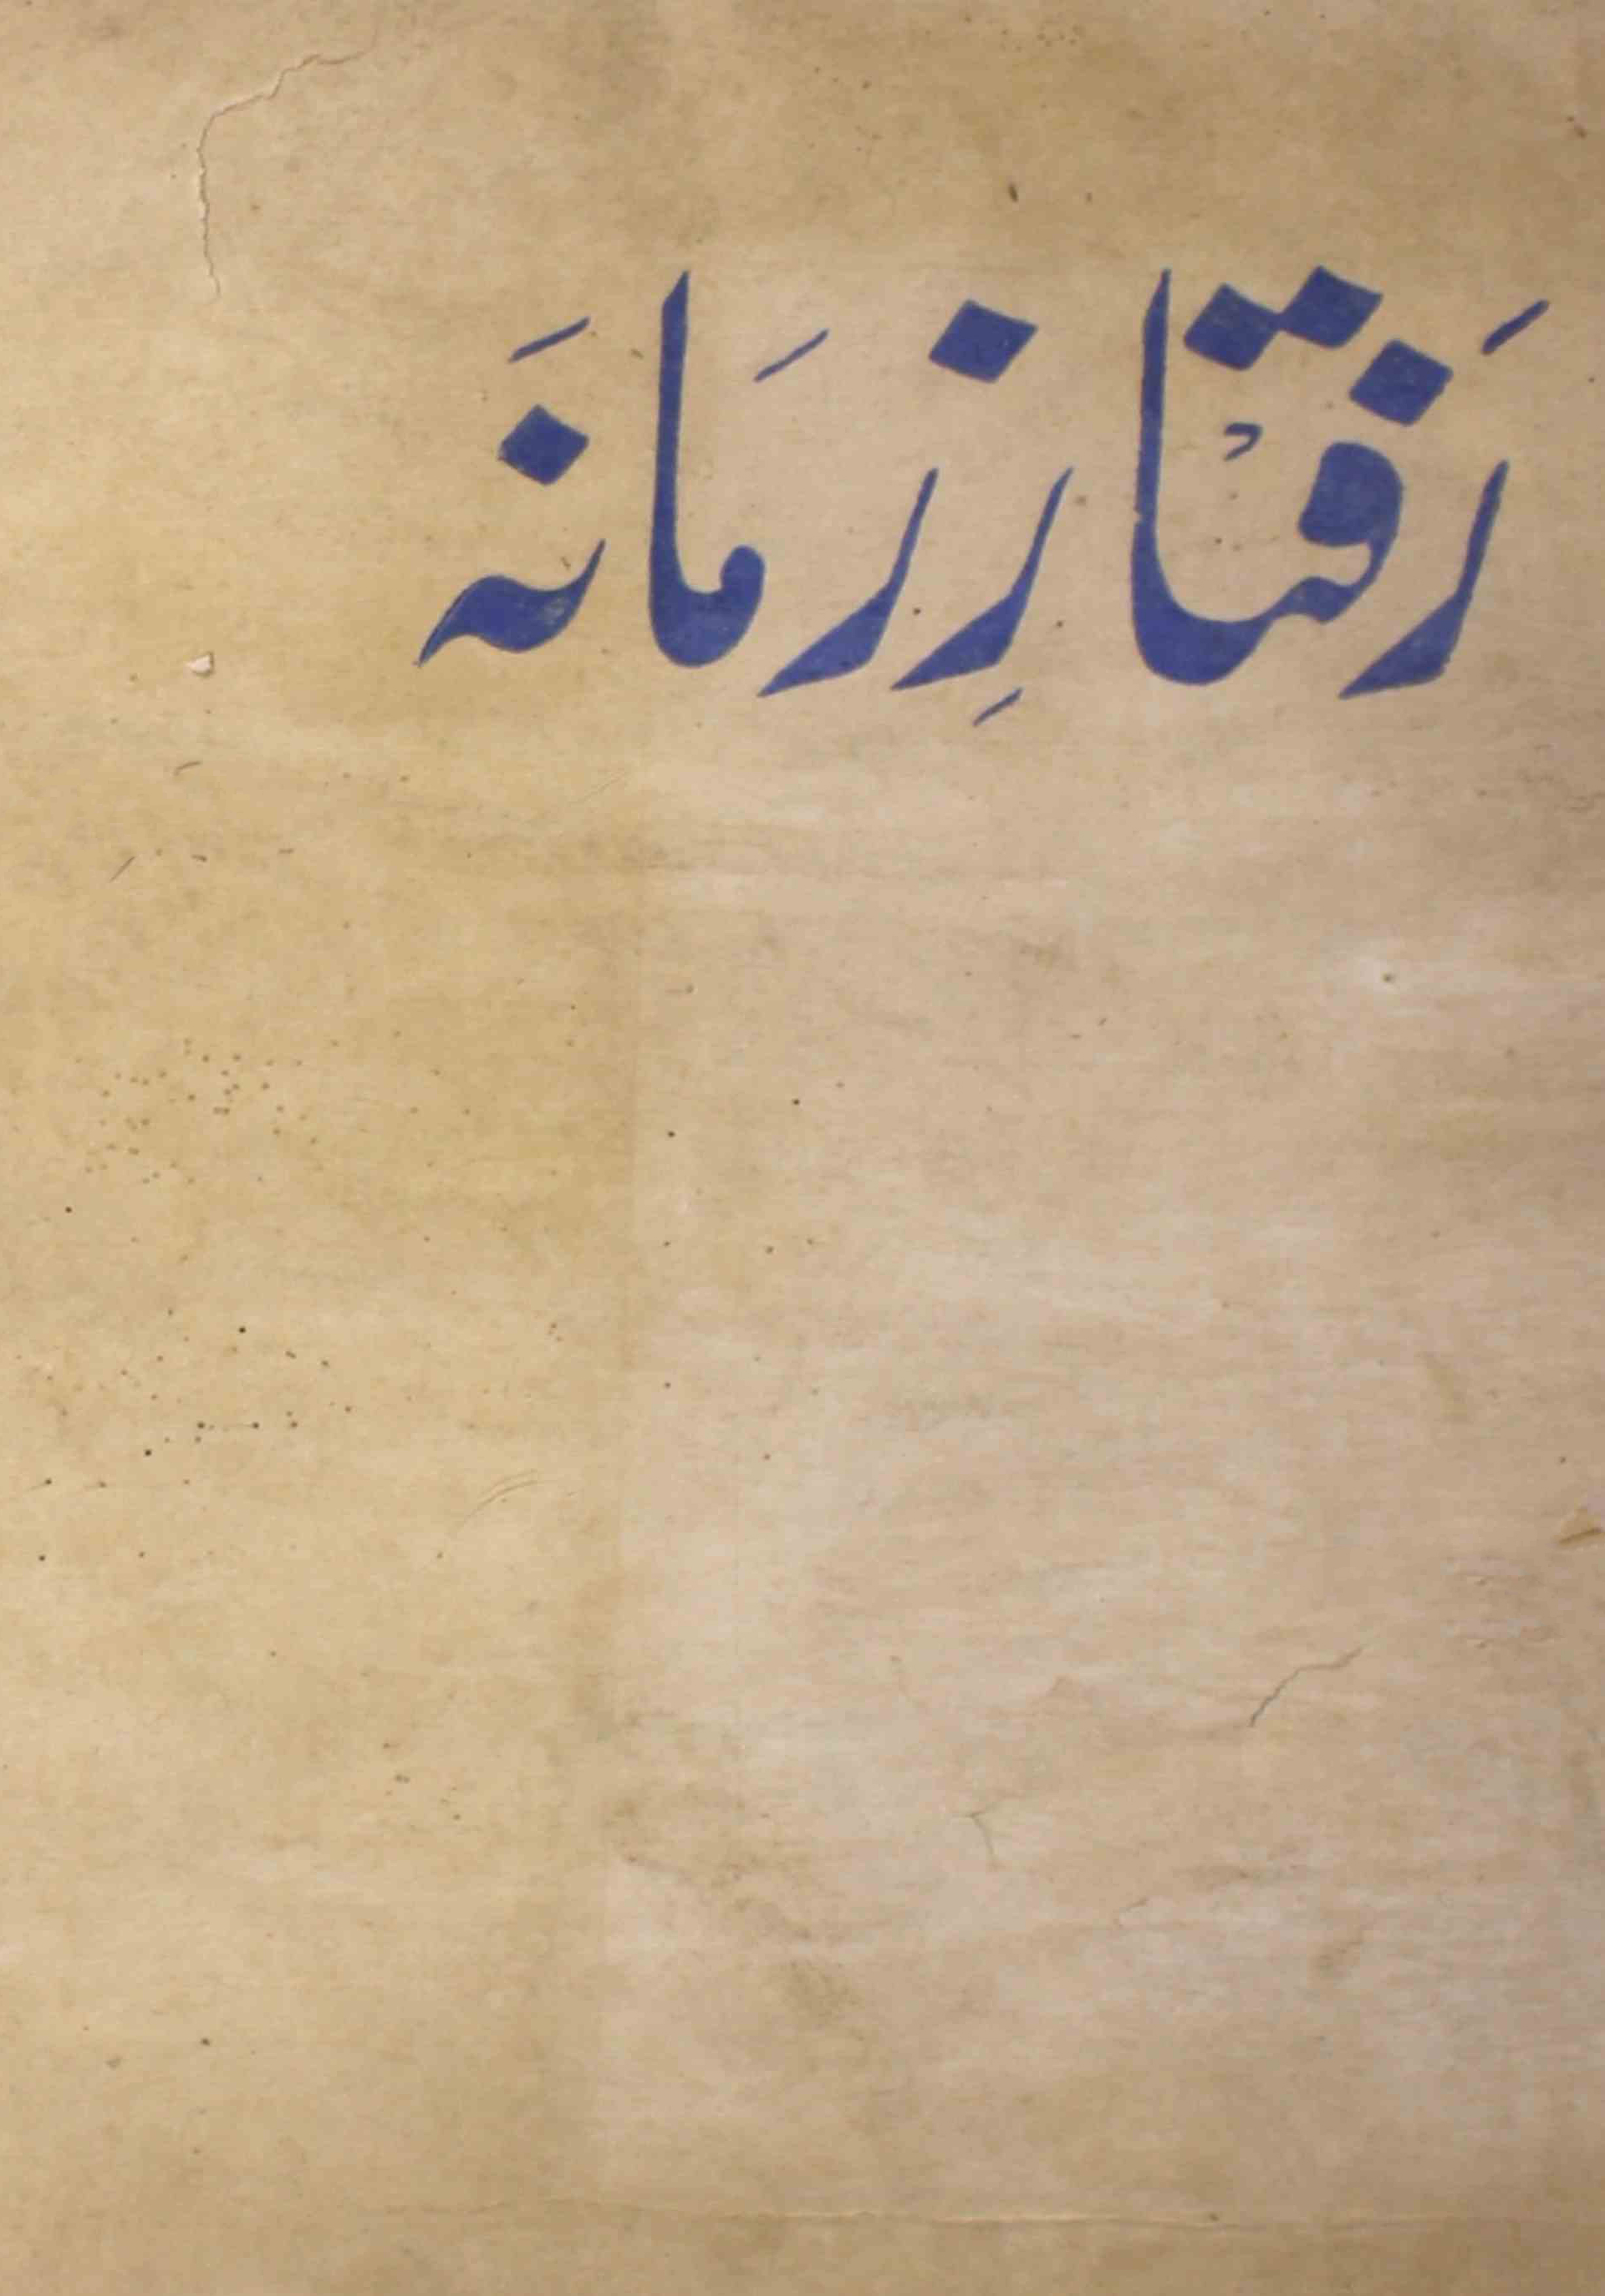 رَفْتارِ زَمانَہ